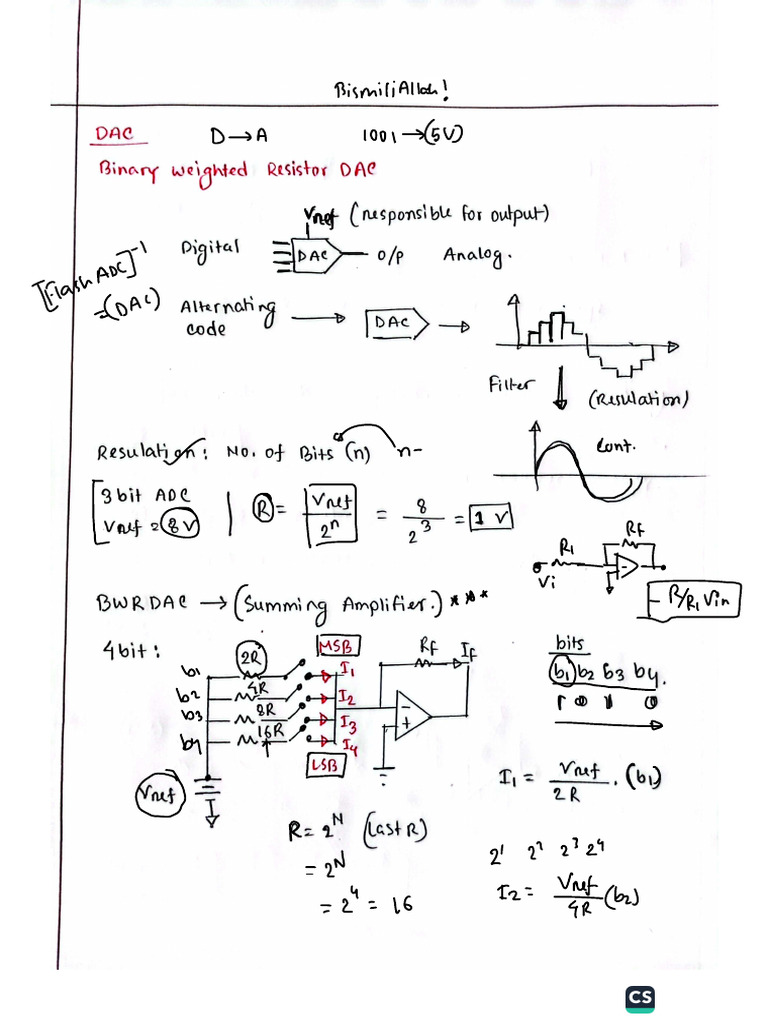 BismiliAllah!
DAC D→A 1001→(5V)
Binary weighted Resistor DAC
Vref (responsible for output)
[Flash ADC]⁻¹ Digital DAC o/p Analog.
=(DAC) Alternating code → DAC →
Filter (Resulation)
Cont.
Resulation: No. of Bits (n) n-
3 bit ADC
Vref = 8V
R = Vref/2ⁿ = 8/2³ = 1 V
R1 Rf
Vi
- R/R1 Vin
BWRDAC → (Summing Amplifier.) ***
4bit: MSB Rf If
b1 2R I1
b2 4R I2
b3 8R I3
b4 16R I4
LSB
- +
Vref
bits
b1 b2 b3 b4.
1 0 1 0
I1 = Vref/2R . (b1)
R = 2ᴺ (last R)
= 2ᴺ
= 2⁴ = 16
2¹ 2² 2³ 2⁴
I2 = Vref/4R (b2)
CS